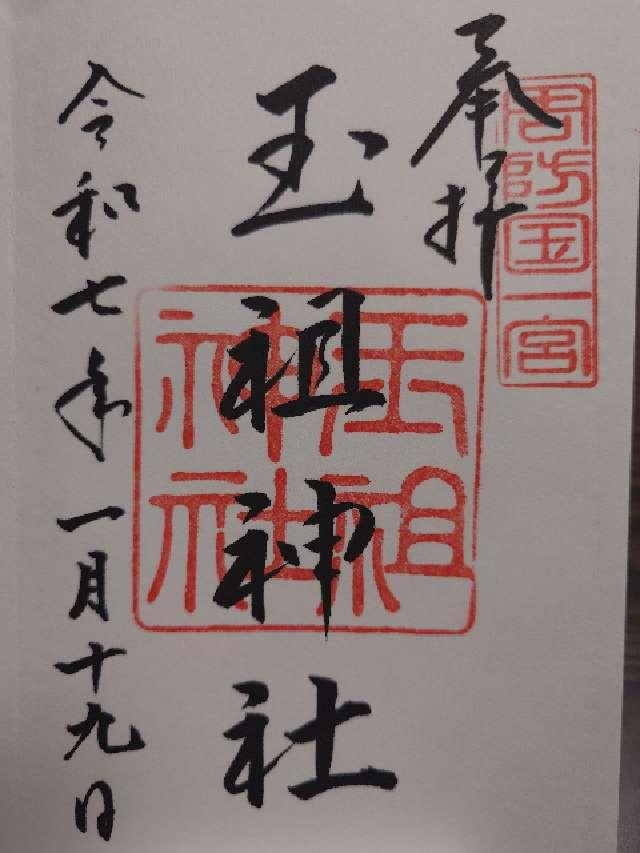 奉拝
周防国一宮
玉祖神社
玉祖神社
令和七年一月十九日